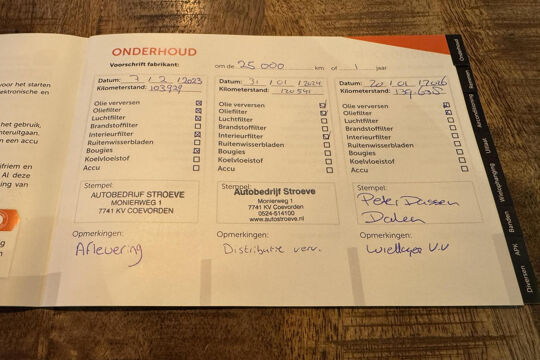 ONDERHOUD
Voorschrift fabrikant: om de 25 000 km of 1 jaar
Datum: 7 / 2 / 2023
Kilometerstand: 103929
Olie verversen
Oliefilter
Luchtfilter
Brandstoffilter
Interieurfilter
Ruitenwisserbladen
Bougies
Koelvloeistof
Accu
Stempel:
AUTOBEDRIJF STROEVE
MONIERWEG 1
7741 KV COEVORDEN
Opmerkingen:
Aflevering
Datum: 31 / 01 / 2024
Kilometerstand: 120541
Olie verversen
Oliefilter
Luchtfilter
Brandstoffilter
Interieurfilter
Ruitenwisserbladen
Bougies
Koelvloeistof
Accu
Stempel:
Autobedrijf Stroeve
Monierweg 1
7741 KV Coevorden
0524-514100
www.autostroeve.nl
Opmerkingen:
Distributie verv.
Datum: 20 / 01 / 2026
Kilometerstand: 139.635
Olie verversen
Oliefilter
Luchtfilter
Brandstoffilter
Interieurfilter
Ruitenwisserbladen
Bougies
Koelvloeistof
Accu
Stempel:
Peter Dassen
Dalen
Opmerkingen:
Wiellager V.V
voor het starten
ektronische en
het gebruik,
nteruitgaan.
en accu
Al deze
ing van
Onderhoud
Remmen
Airconditioning
Uitlaat
Wielophanging
Banden
APK
Diversen